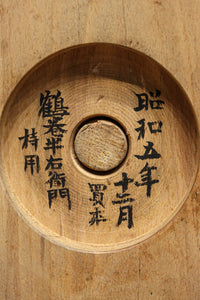 昭和五年
十二月
買来
鶴巻半右衛門
持用